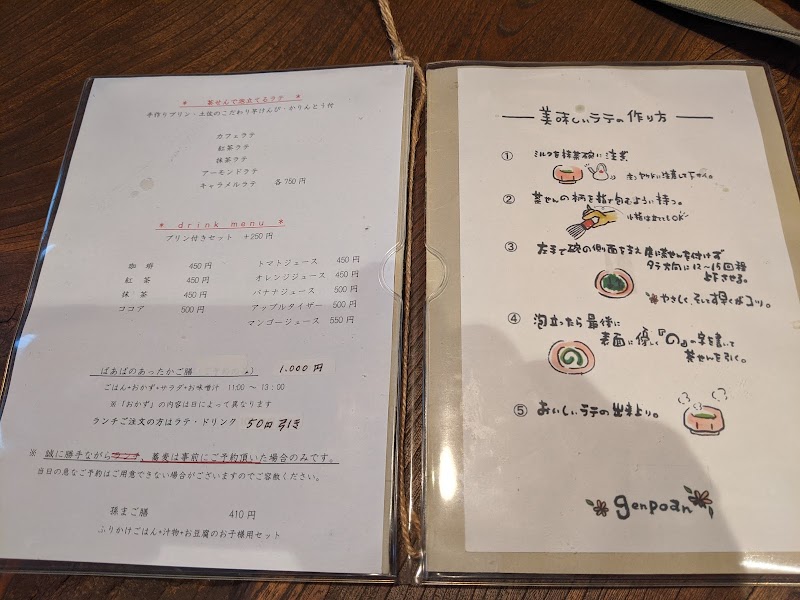 * 茶せんで泡立てるラテ *
手作りプリン・土佐のこだわり芋けんぴ・かりんとう付
カフェラテ
紅茶ラテ
抹茶ラテ
アーモンドラテ
キャラメルラテ 各750円
* drink menu *
プリン付きセット +250円
珈琲 450円
紅茶 450円
抹茶 450円
ココア 500円
トマトジュース 450円
オレンジジュース 450円
バナナジュース 500円
アップルタイザー 500円
マンゴージュース 550円
ばあばのあったかご膳 1.000円
ごはん+おかず+サラダ+お味噌汁 11:00 〜 13:00
※「おかず」の内容は日によって異なります
ランチご注文の方はラテ・ドリンク 50円引き
※ 誠に勝手ながらランチ、蕎麦は事前にご予約頂いた場合のみです。
当日の急なご予約はご用意できない場合がございますのでご容赦ください。
孫まご膳 410円
ふりかけごはん+汁物+お豆腐のお子様用セット
美味しいラテの作り方
① ミルクを抹茶碗に注ぎ
ホットなので注意して下さい。
② 茶せんの柄を指で包むように持つ。
小指は立ててもOK
③ 左手で碗の側面を支え 底に茶せんを付けず
タテ方向に12〜15回程
上下させる。
やさしく、そして素早くがコツ。
④ 泡立ったら最後に
表面に優しく『の』の字を書いて
茶せんを引く。
⑤ おいしいラテの出来上り。
genpoan